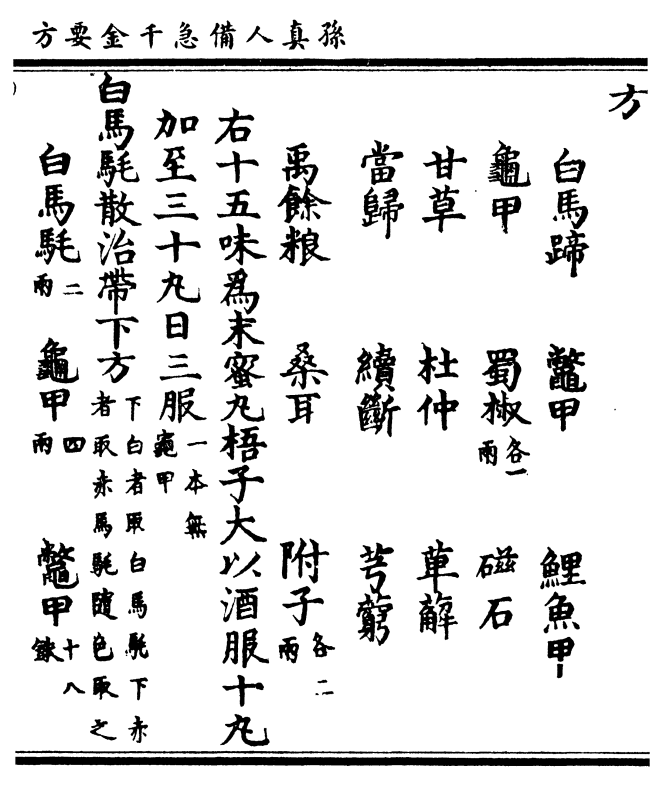 孫真人備急千金要方
方
白馬蹄 鼈甲 鯉魚甲
龜甲 蜀椒各一兩 磁石
甘草 杜仲 萆薢
當歸 續斷 芎藭
禹餘粮 桑耳 附子各二兩
右十五味爲末蜜丸梧子大以酒服十丸
加至三十丸日三服一本無龜甲
白馬駞散治帶下方下白者取白馬駞下赤者取赤馬駞隨色取之
白馬駞二兩 龜甲四兩 鼈甲十八銖